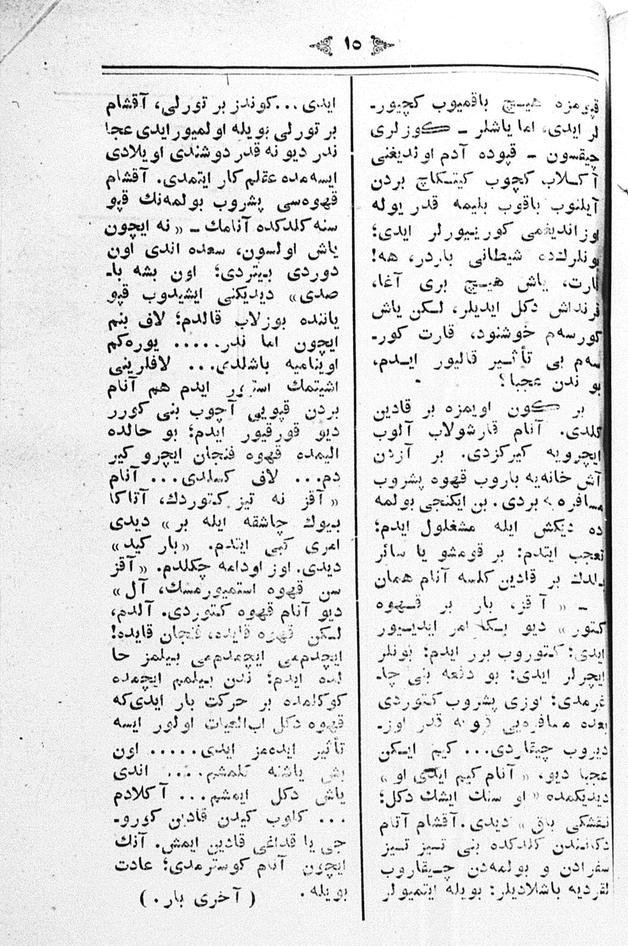 ١٥
قپومزه هیچ باقمیوب کچیور-
لر ایدی، اما یاشلر – کوزلری
چیقسون – قپوده آدم اوندیغنی
آکلاب کچوب کیتکاچ بردن
آیلنوب باقوب بلیمه قدر یوله
اوزاندیغمی کوریورلر ایدی؛
بونلرده شیطانی باردر، هه!
قارت، یاش هیچ بری آغا،
قرنداش دکل ایدیلر، لکن یاش
کورسه‌م خوشنود، قارت کور-
سه‌م بی تأثیر قالیور ایدم،
بو ندن عجبا؟
بر کون اویمزه بر قادین
کلدی. آنام قارشولاب آلوب
ایچرویه کیرکزدی. بر آزدن
آش خانه‌یه باروب قهوه پشروب
مسافره بردی. بن ایکنجی بولمه
ده دیکش ایله مشغلول ایدم؛
تعجب ایتدم: بر قومشو یا سائر
بلدك بر قادین کلسه آنام همان
– «آقز، بار بر قهوه
کتور» دیو بکا امر ایدیور
ایدی؛ کتوروب برر ایدم؛ بونلر
ایچرلر ایدی: بو دفعه بنی چا-
غرمدی؛ اوزی پشروب کتوردی
بعده مسافره‌یی قدر اوز-
دیروب چیقاردی... کیم ایکن
عجبا دیو، «آنام کیم ایدی او»
دیدیکمده «او سنك ایشك دکل؛
نقشکی باق» دیدی. آقشام آتام
دکانندن کلدکده بنی تیز تیز
سفرادن و بولمه‌دن چیقاروب
لقردیه باشلادیلر: بویله ایتمیولر
ایدی...کوندز بر تورلی، آقشام
بر تورلی بویله اولمیور ایدی عجا
ندر دیو نه قدر دوشندی اویلادی
ایسه‌مده عقلم کار ایتمدی. آقشام
قهوه‌سی پشروب بولمه‌نك قپو
سنه کلدکده آنامك – «نه ایچون
یاش اولسون، سعده اندی اون
دوردی بیتردی؛ اون بشه با-
صدی» دیدیکنی ایشیدوب قپو
یاننده بوزلاب قالدم؛ لاف بنم
ایچون اما ندر..... یوره‌کم
اوینامیه باشلدی... لافلرینی
اشیتمك استور ایدم هم آنام
بردن قپویی آچوب بنی کورر
دیو قورقیور ایدم؛ بو حالده
الیمده قهوه فنجان ایچرو کیر
دم... لاف کسلدی... آنام
«آقز نه تیز کتوردك، آتاکا
بیوك چاشقه ایله بر» دیدی
امری کبی ایتدم. «بار کید»
دیدی. اوز اودامه چکلدم. «آقز
سن قهوه استمیورمسك، آل»
دیو آنام قهوه کتوردی. آلدم،
لکن قهوه قایده، فنجان قایده!
ایچدم‌می ایچمدم‌می بیلمز حا
لده ایدم؛ ندن بیلمم ایچمده
کوکلمده بر حرکت بار ایدی‌که
قهوه دکل اب‌الحیات اولور ایسه
تأثیر ایده‌مز ایدی..... اون
بش یاشنه کلمشم.... اندی
یاش دکل ایمشم... آکلادم
... کلوب کیدن قادین کورو-
جی یا قداغی قادین ایمش. آنك
ایچون آنام کوسترمدی؛ عادت
بویله.
(آخری بار.)